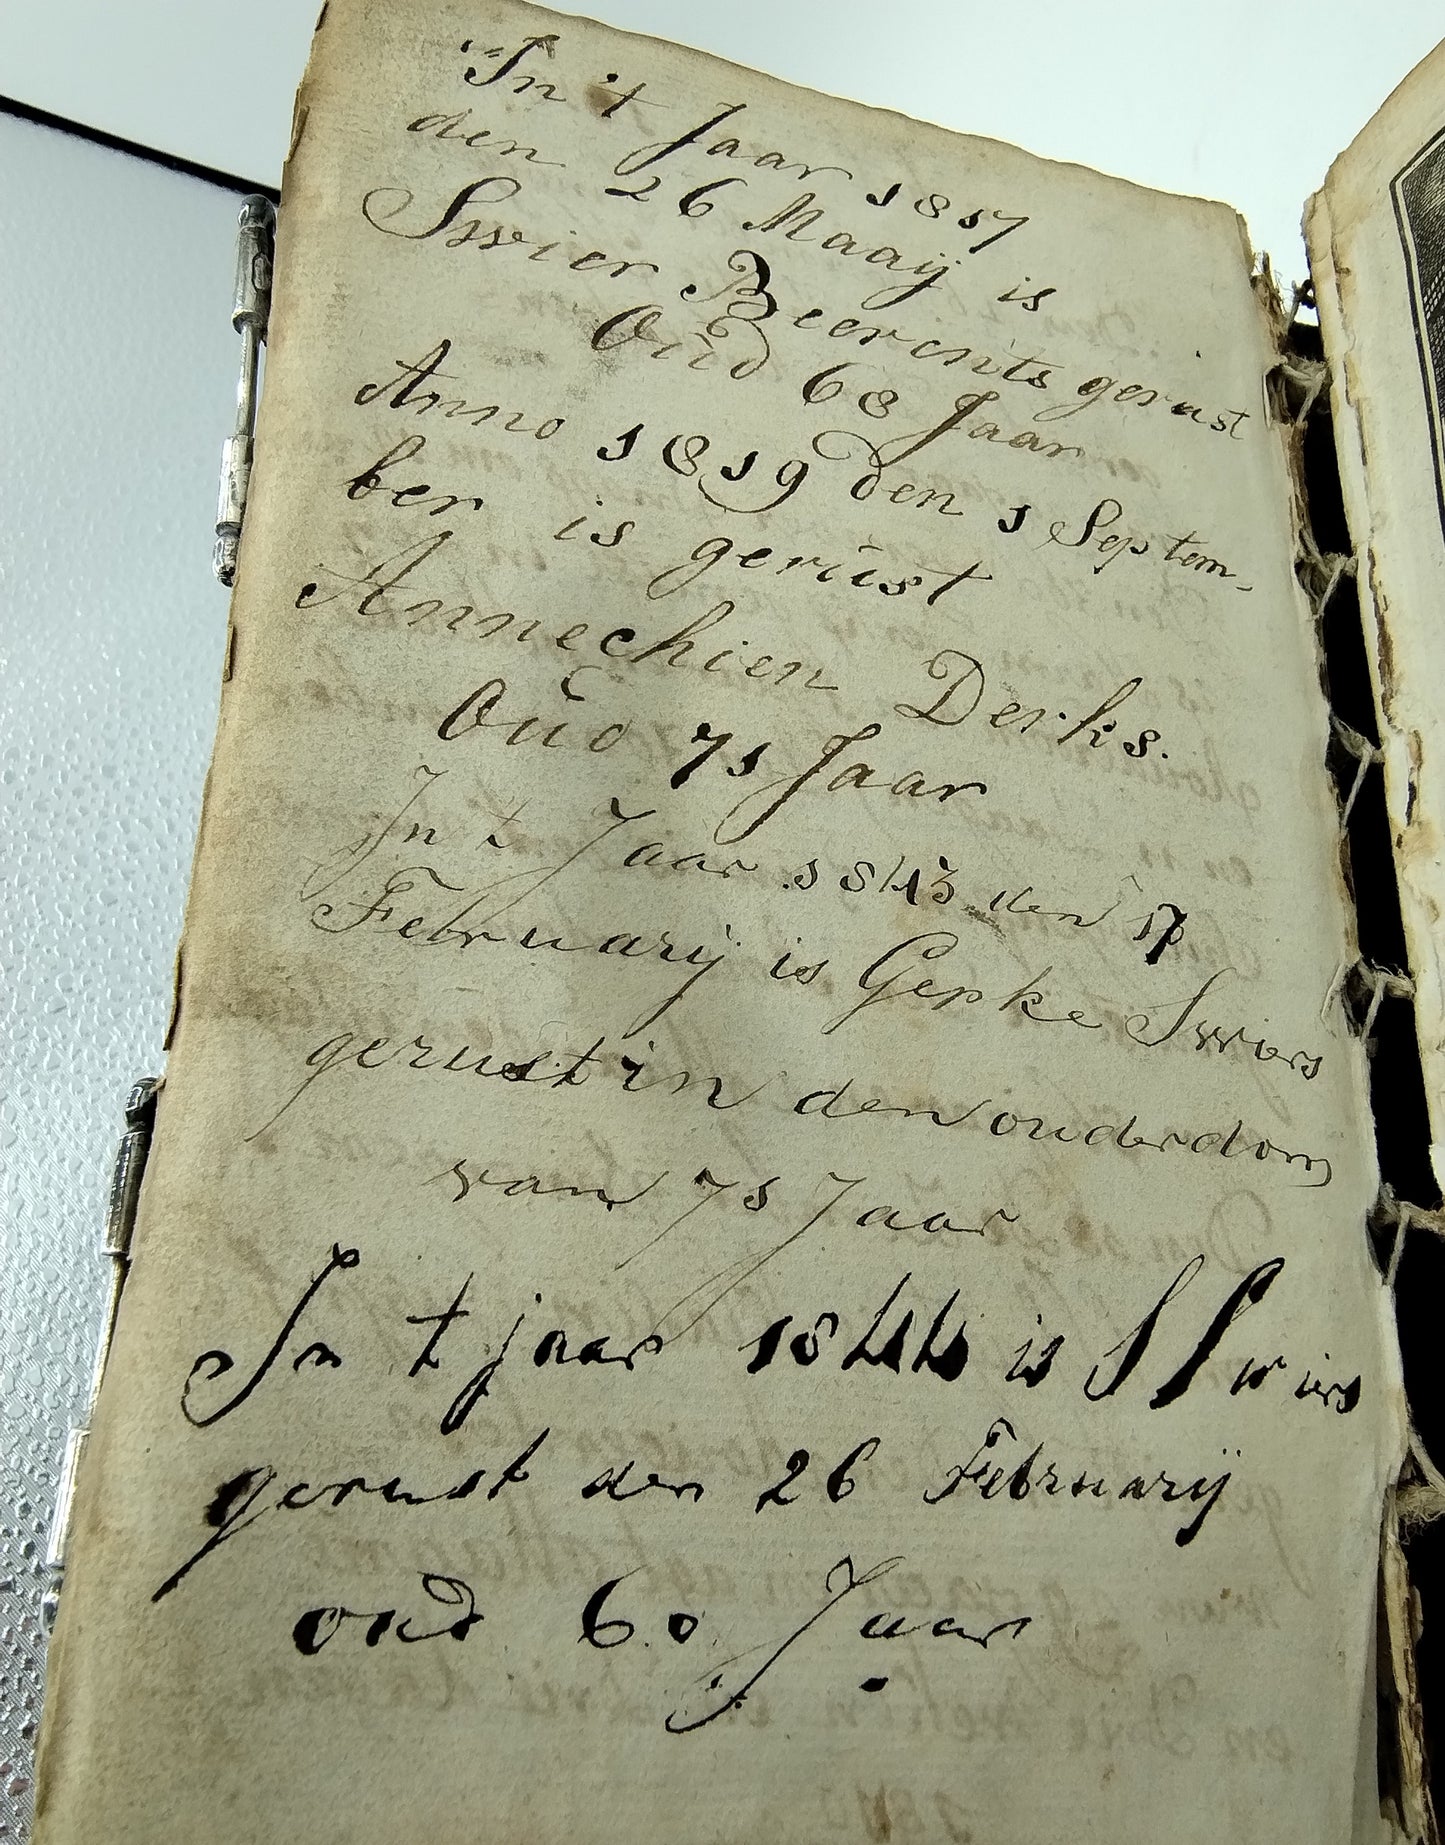 In 't Jaar 1817
den 26 Maaij is
Swier Beerents gerust
Oud 68 Jaar
Anno 1819 den 1 Septem-
ber is gerust
Annechien Derks.
Oud 71 Jaar
In t Jaar 1843 den 17
Februarij is Gepke Swiers
gerust in den ouderdom
van 71 Jaar
In t jaar 1844 is S Swiers
gerust den 26 Februarij
oud 60 Jaar